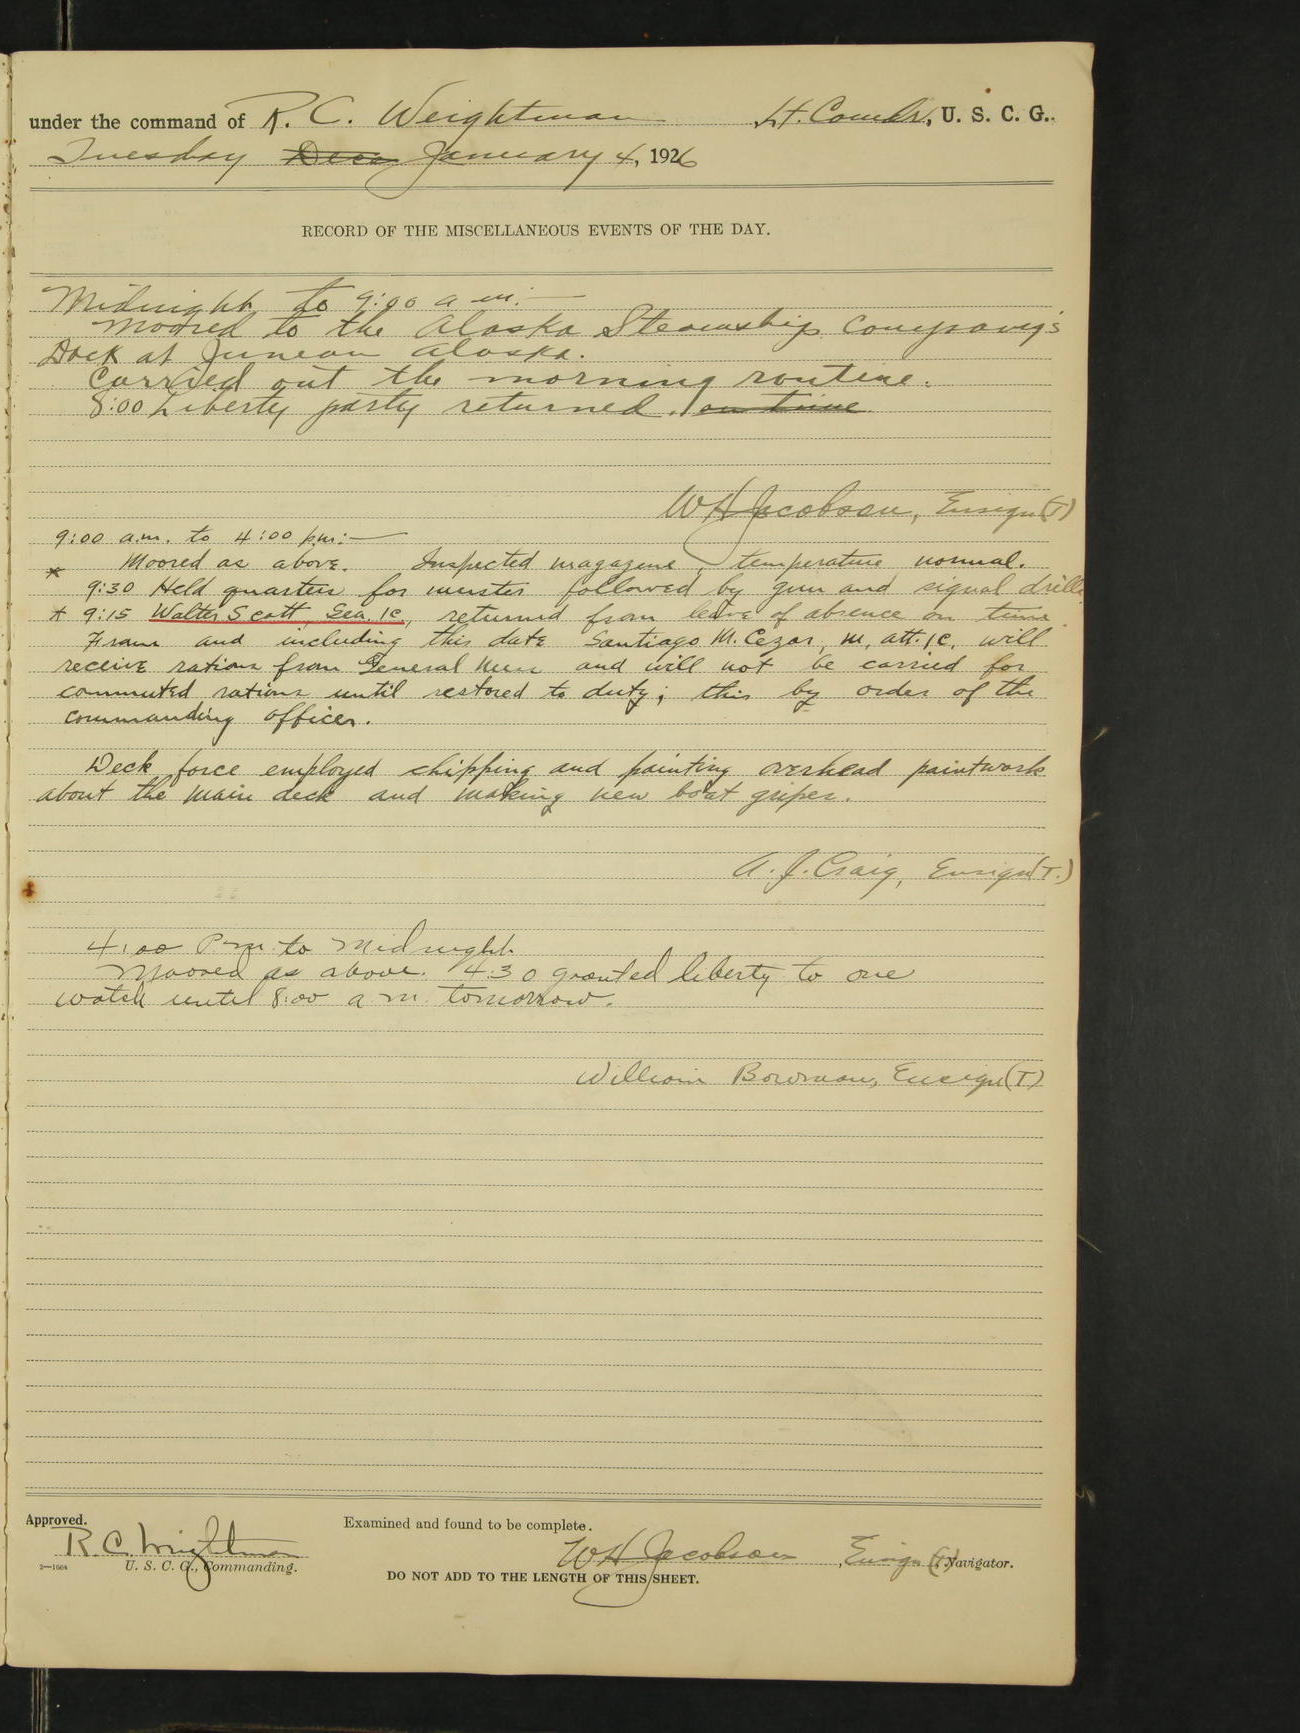 under the command of R. C. Weightman Lt. Comdr., U. S. C. G..
Tuesday Dece January 4, 1926
RECORD OF THE MISCELLANEOUS EVENTS OF THE DAY.
Midnight to 9:00 a m:—
Moored to the Alaska Steamship Company's
Dock at Juneau Alaska.
Carried out the morning routine.
8:00 Liberty party returned. on time
W H Jacobson, Ensign (T)
9:00 a.m. to 4:00 p.m:—
Moored as above. Inspected magazine, temperature normal.
* 9:30 Held quarters for muster followed by gun and signal drills
* 9:15 Walter Scott, Sea. 1c, returned from leave of absence on time
From and including this date Santiago M. Cezar, M, att. 1c, will
receive rations from General Mess and will not be carried for
commuted rations until restored to duty; this by order of the
commanding officer.
Deck force employed chipping and painting overhead paintwork
about the main deck and making new boat gripes.
A. J. Craig, Ensign (T.)
4:00 P m to Midnight
Moored as above. 4:30 granted liberty to one
watch until 8:00 a m tomorrow.
William Bowman, Ensign (T)
Approved. Examined and found to be complete.
R. C. Weightman W H Jacobson, Ensign (T) Navigator.
2—1664 U. S. C. G., Commanding.
DO NOT ADD TO THE LENGTH OF THIS SHEET.